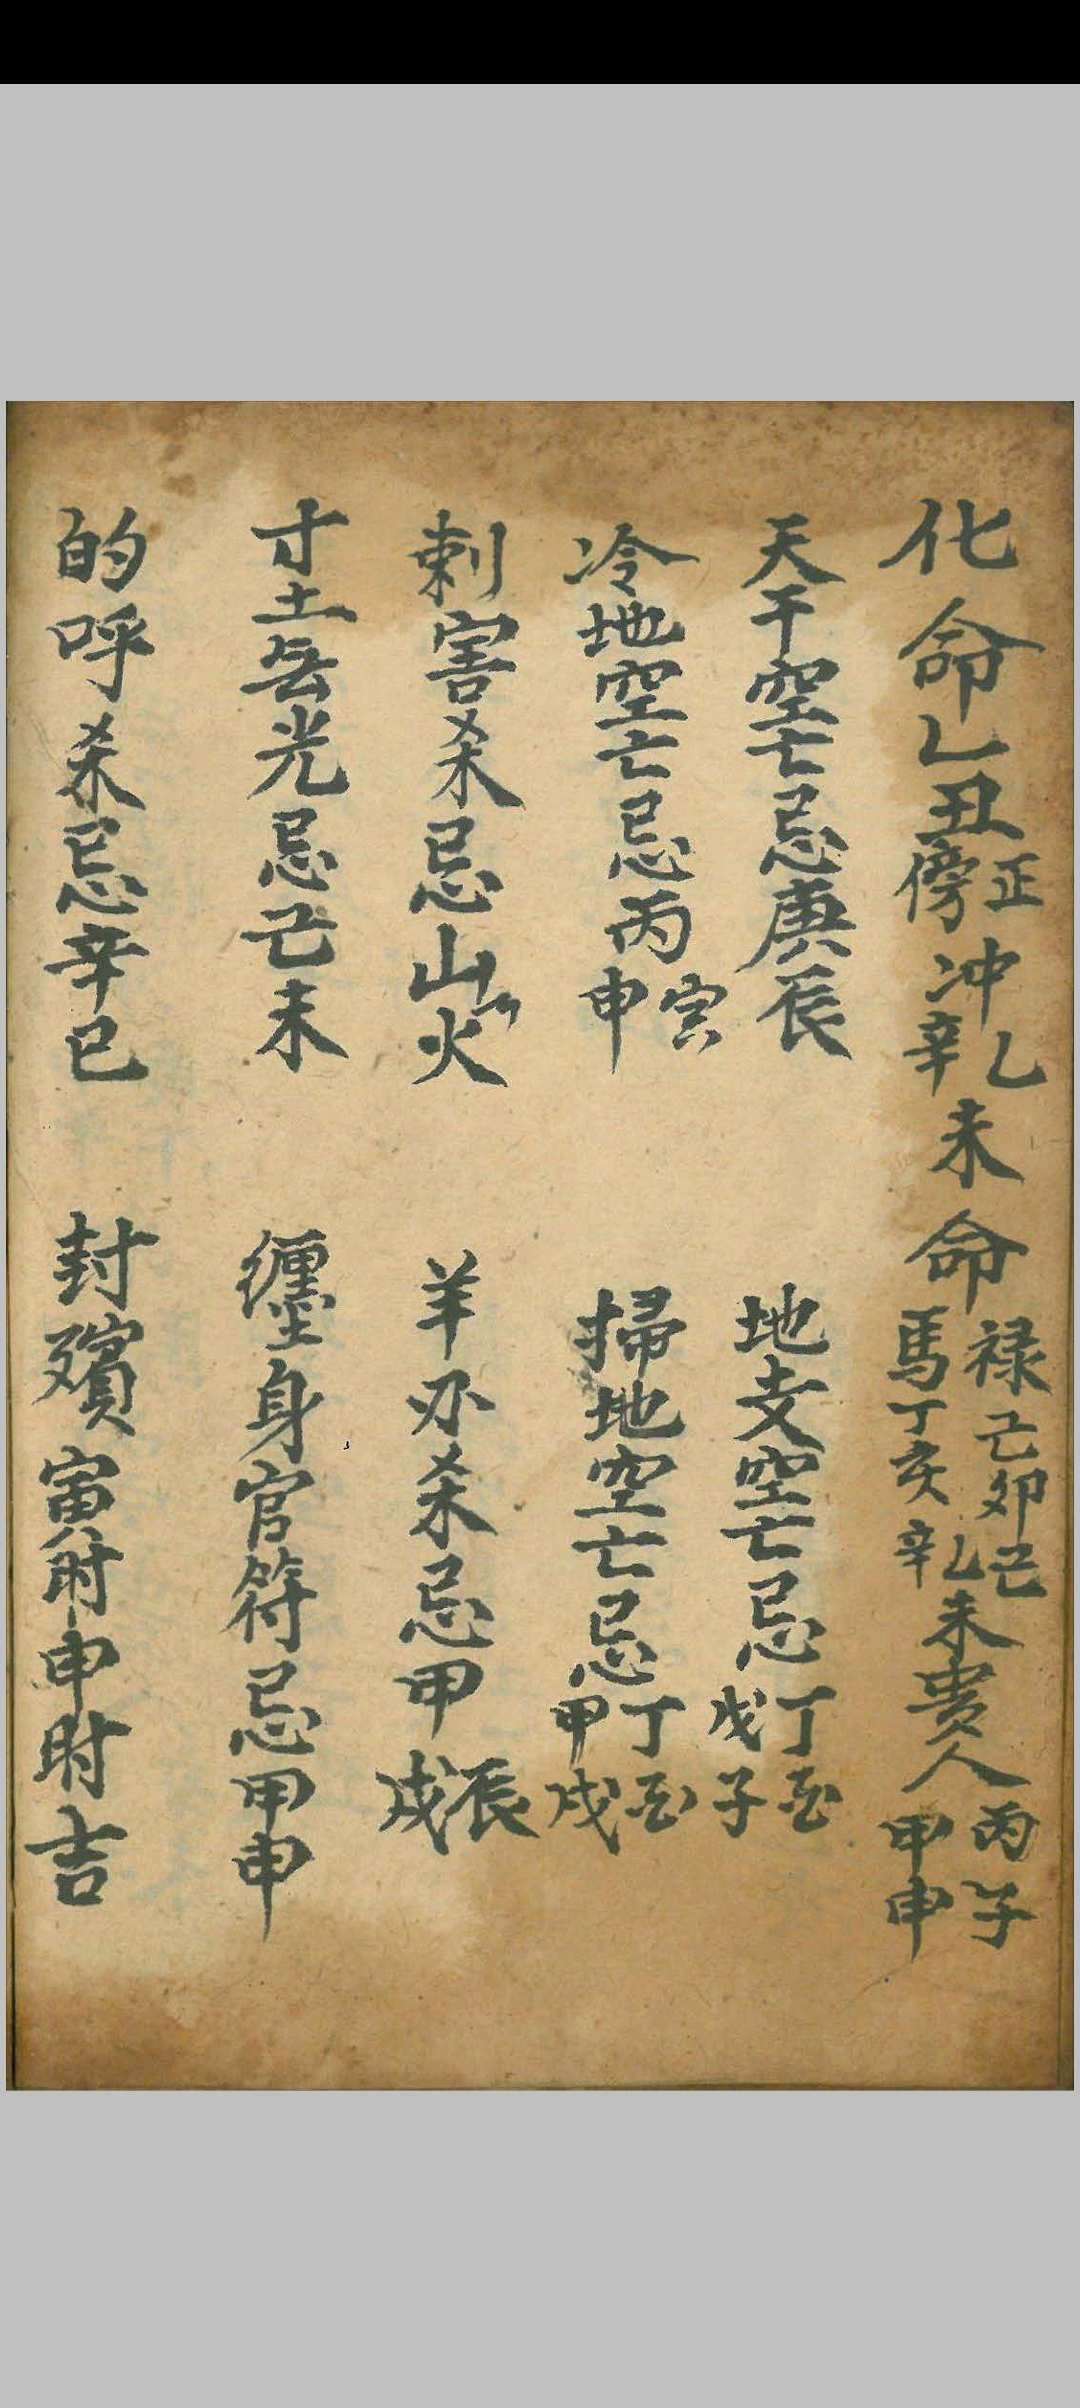 化命乙丑正傍冲乙辛未命禄己卯己馬丁亥乙辛未贵人丙子甲申
天干空亡忌庚辰
地支空亡忌丁戊子
冷地空亡忌丙寅申
掃地空亡忌丁甲戌
刺害杀忌山火
羊刃杀忌甲辰戌
寸土無光忌己未
缠身官符忌甲申
的呼杀忌辛巳
封殯寅时申时吉